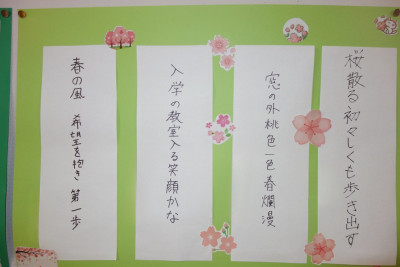 桜散る初々しくも歩き出す
窓の外桃色一色春爛漫
入学の教室入る笑顔かな
春の風 希望を抱き 第一歩